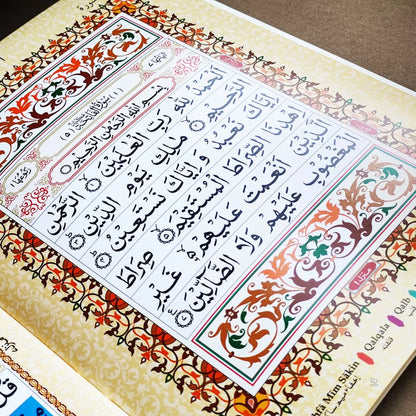 سورة الفاتحة
بسم الله الرحمن الرحيم
الحمد لله رب العلمين الرحمن
الرحيم ملك يوم الدين
اياك نعبد و اياك نستعين
اهدنا الصراط المستقيم صراط
الذين انعمت عليهم غير
المغضوب عليهم ولا الضالين
Mim Sakin
Qalqala
قلقلة
Qalb